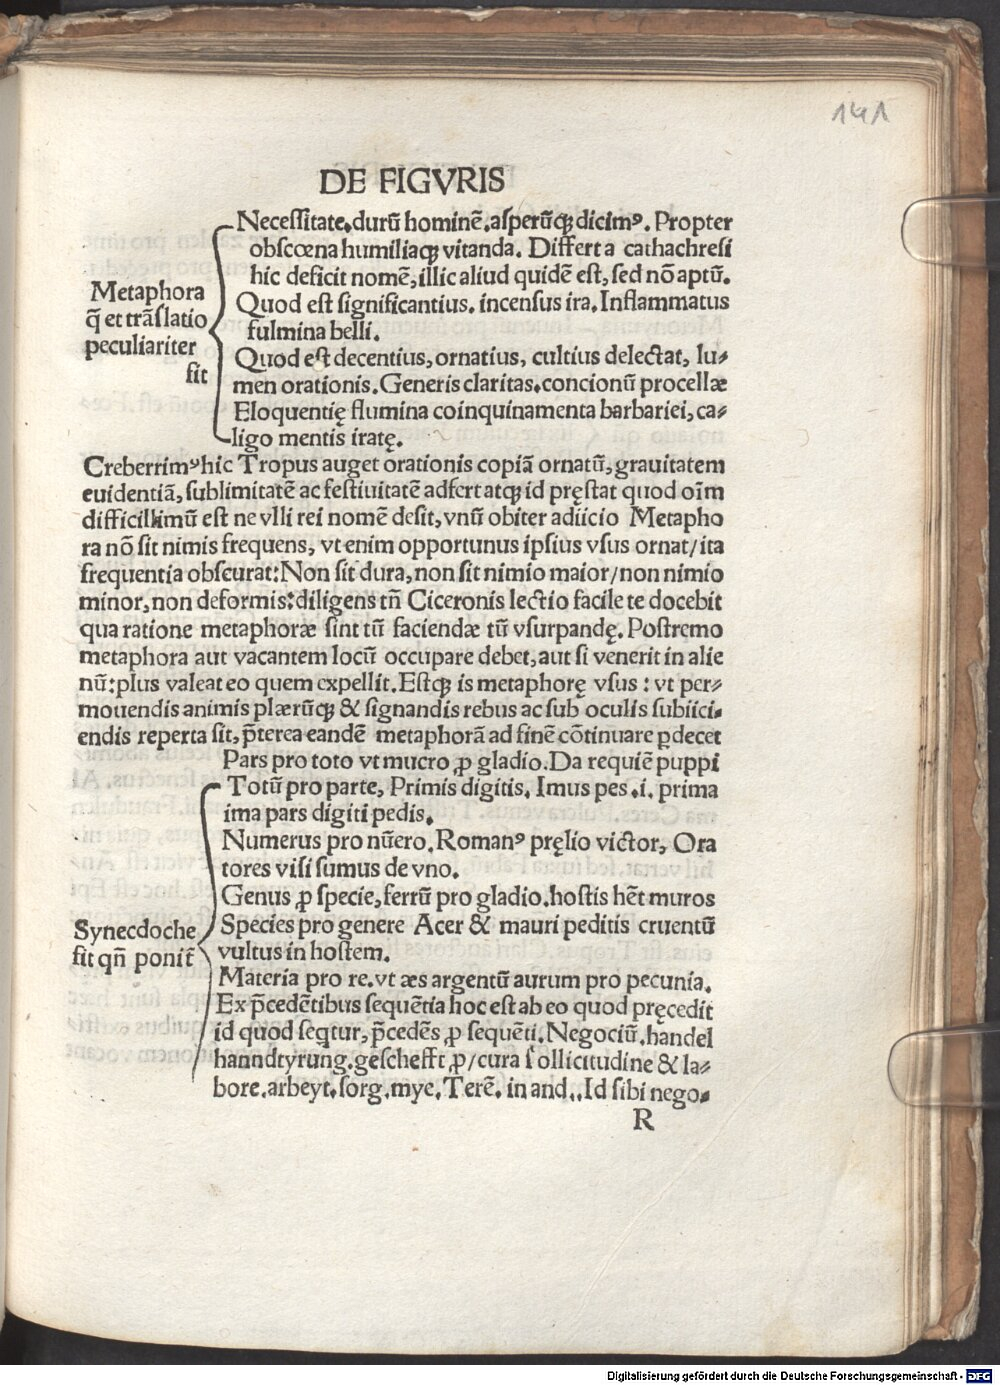 141
DE FIGVRIS
Neceſſitate.durū hominē.aſperūq̨ dicimꝰ. Propter
obſcœna humiliaq̨ vitanda. Differt a cathachreſi
hic deficit nomē, illic aliud quidē eſt, ſed nō aptū.
Metaphora
q̄ et trāſlatio
peculiariter
ſit
Quod eſt ſignificantius. incenſus ira. Inflammatus
fulmina belli.
Quod eſt decentius, ornatius, cultius delectat, lu⸗
men orationis. Generis claritas.concionū procellæ
Eloquentię flumina coinquinamenta barbariei, ca⸗
ligo mentis iratę.
Creberrimꝰ hic Tropus auget orationis copiā ornatū, grauitatem
euidentiā, ſublimitatē ac feſtiuitatē adfert atq̨ id pręſtat quod oīm
difficillimū eſt ne vlli rei nomē deſit, vnū obiter adiicio Metapho
ra nō ſit nimis frequens, vt enim opportunus ipſius vſus ornat/ita
frequentia obſcurat: Non ſit dura, non ſit nimio maior/non nimio
minor, non deformis: diligens tn̄ Ciceronis lectio facile te docebit
qua ratione metaphoræ ſint tū faciendæ tū vſurpandę. Poſtremo
metaphora aut vacantem locū occupare debet, aut ſi venerit in alie
nū: plus valeat eo quem expellit. Eſtq̨ is metaphorę vſus : vt per⸗
mouendis animis plærūq̨ & ſignandis rebus ac ſub oculis ſubiici⸗
endis reperta ſit, p̄terea eandē metaphorā ad finē cōtinuare ꝑdecet
Pars pro toto vt mucro ꝓ gladio. Da requiē puppi
Totū pro parte, Primis digitis. Imus pes .i. prima
ima pars digiti pedis.
Numerus pro nūero. Romanꝰ pręlio victor, Ora
tores viſi ſumus de vno.
Genus ꝓ ſpecie, ferrū pro gladio.hoſtis hēt muros
Synecdoche
fit qn̄ ponit̄
Species pro genere Acer & mauri peditis cruentū
vultus in hoſtem.
Materia pro re.vt æs argentū aurum pro pecunia.
Ex p̄cedētibus ſequētia hoc eſt ab eo quod pręcedit
id quod ſeqtur, p̄cedēs ꝓ ſequēti. Negociū.handel
hanndtyrung.geſchefft ꝓ/cura ſollicitudine & la⸗
bore.arbeyt.ſorg.mye. Terē. in and.. Id ſibi nego⸗
R
Digitalisierung gefördert durch die Deutsche Forschungsgemeinschaft - DFG